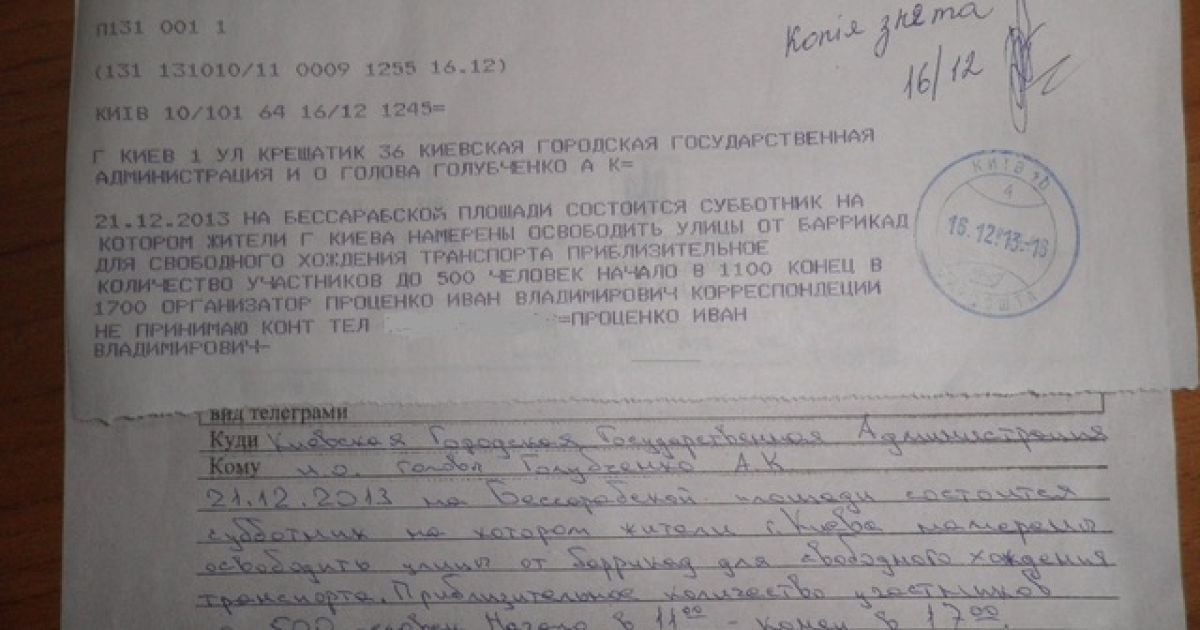 П131 001 1
Копія знята
16/12
(131 131010/11 0009 1255 16.12)
КИІВ 10/101 64 16/12 1245=
Г КИЕВ 1 УЛ КРЕЩАТИК 36 КИЕВСКАЯ ГОРОДСКАЯ ГОСУДАРСТВЕННАЯ
АДМИНИСТРАЦИЯ И О ГОЛОВА ГОЛУБЧЕНКО А К=
КИТВ 10
4
16.12.13.-16
21.12.2013 НА БЕССАРАБСКОЙ ПЛОЩАДИ СОСТОИТСЯ СУББОТНИК НА
КОТОРОМ ЖИТЕЛИ Г КИЕВА НАМЕРЕНЫ ОСВОБОДИТЬ УЛИЦЫ ОТ БАРРИКАД
ДЛЯ СВОБОДНОГО ХОЖДЕНИЯ ТРАНСПОРТА ПРИБЛИЗИТЕЛЬНОЕ
КОЛИЧЕСТВО УЧАСТНИКОВ ДО 500 ЧЕЛОВЕК НАЧАЛО В 1100 КОНЕЦ В
1700 ОРГАНИЗАТОР ПРОЦЕНКО ИВАН ВЛАДИМИРОВИЧ КОРРЕСПОНДЕЦИИ
НЕ ПРИНИМАЮ КОНТ ТЕЛ =ПРОЦЕНКО ИВАН
ВЛАДИМИРОВИЧ-
вид телеграми
Куди Киевская Городская Государственная Администрация
Кому и.о. головы Голубченко А.К
21.12.2013 на Бессарабской площади состоится
субботник на котором жители г.Киева намерены
освободить улицы от баррикад для свободного хождения
транспорта. Приблизительное количество участников
500 человек Начало в 11⁰⁰ - конец в 17⁰⁰.